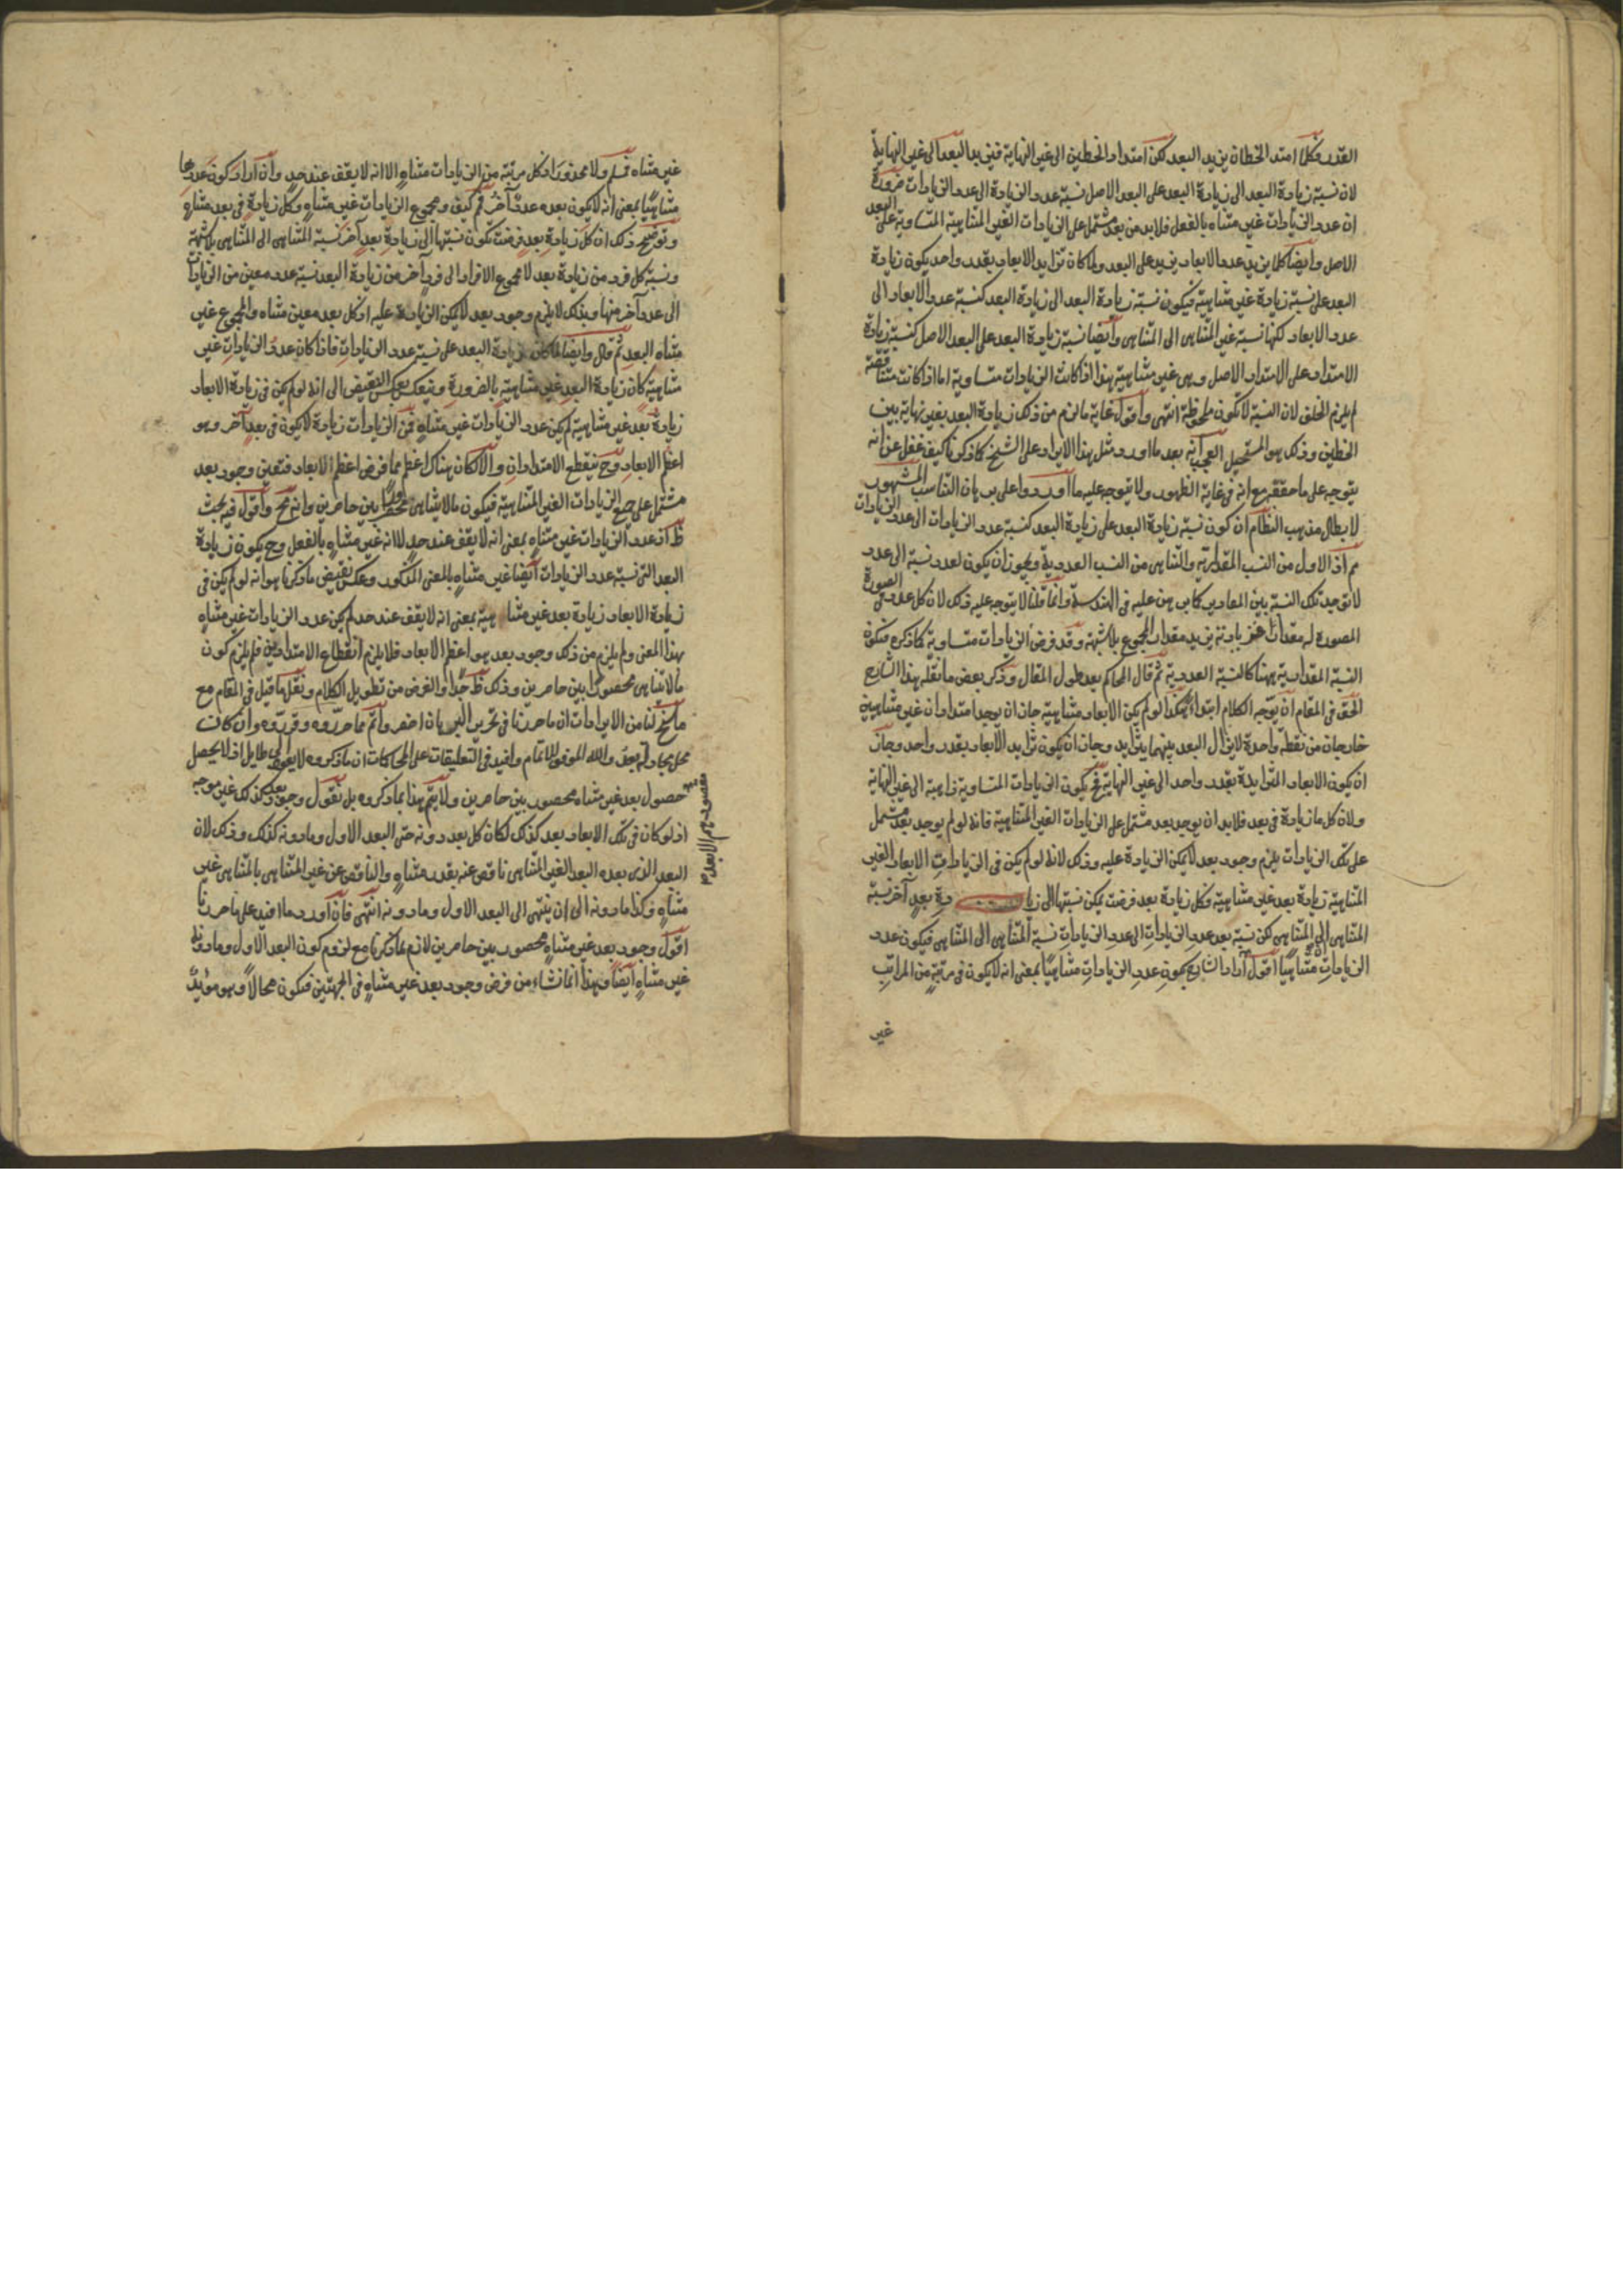 القدر فكلما امتد الخطان يزيد البعد لكن امتداد الخطين الى غير النهاية فيزيد البعد الى غير النهاية
لان نسبة زيادة البعد الى زيادة البعد على البعد الاصل نسبة عدد الزيادة الى عدد الزيادات ضرورة
ان عدد الزيادات غير متناه بالفعل فلابد من بعد مشتمل على الزيادات الغير المتناهية المتساوية على البعد
الاصل وايضا كلما يزيد عدد الابعاد يزيد على البعد ولما كان تزايد الابعاد بقدر واحد يكون زيادة
البعد على نسبة زيادة غير متناهية فيكون نسبة زيادة البعد الى زيادة البعد كنسبة عدد الابعاد الى
عدد الابعاد لكنها نسبة غير المتناهى الى المتناهى وايضا نسبة زيادة البعد على البعد الاصل كنسبة زيادة
الامتداد على الامتداد الاصل وهى غير متناهية هذا اذا كانت الزيادات متساوية اما اذا كانت متناقصة
لم يلزم الخلف لان النسبة لا تكون محفوظة انتهى واقول غاية ما لزم من ذلك زيادة البعد بغير نهاية بين
الخطين وذلك هو المستحيل العجب انه بعد ما اورد مثل هذا الايراد على الشيخ كما ذكرنا كيف غفل عن انه
يتوجه على ما حققه مع انه فى غاية الظهور ولا يتوجه عليه ما اوردوا على برهان التناسب المشهور
لابطال مذهب النظام ان كون نسبة زيادة البعد على زيادة البعد كنسبة عدد الزيادات الى عدد الزيادات
مم اذ الاول من النسب المقدارية والثانى من النسب العددية ويجوز ان يكون لعدد نسبة الى عدد
لا توجد تلك النسبة بين المقادير كما برهن عليه فى الهندسة وانما قلنا لا يتوجه عليه ذلك لان كل عدد فى الصورة
المصورة له مقدار فبزيادته يزيد مقدار المجموع بلا شبهة وقد فرض الزيادات متساوية كما ذكره فتكون
النسبة المقدارية ههنا كالنسبة العددية ثم قال المحاكم بعد طول المقال وذكر بعض ما نقله هذا الشارح
الحق فى المقام ان يوجه الكلام ابتداء هكذا لو لم يكن الابعاد متناهية جاز ان يوجد امتدادان غير متناهيين
خارجان من نقطة واحدة لا يزال البعد بينهما يتزايد وجاز ان يكون تزايد الابعاد بقدر واحد وجاز
ان يكون الابعاد المتزايدة بقدر واحد الى غير النهاية فح يكون الزيادات المتساوية ذاهبة الى غير النهاية
ولان كل ما زيادة فى بعد فلابد ان يوجد بعد مشتمل على الزيادات الغير المتناهية فانه لو لم يوجد بعد مشتمل
على تلك الزيادات يلزم وجود بعد لا يمكن الزيادة عليه وذلك لانه لو لم يكن فى الزيادات الابعاد الغير
المتناهية زيادة بعد غير متناهية وكل زيادة بعد فرضت يمكن نسبتها الى زيا دة بعد آخر نسبة
المتناهى الى المتناهى لكن نسبة بعد عدد الزيادات الى عدد الزيادات نسبة المتناهى الى المتناهى فيكون عدد
الزيادات متناهيا اقول ان اراد الشارح بكون عدد الزيادات متناهيا بمعنى انه لا يكون فى مرتبة من المراتب
غير
غير متناه فسلم ولا محذور اذ كل مرتبة من الزيادات متناه الا انه لا يقف عند حد وان اراد كون عددها
متناهيا بمعنى انه لا يكون بعده عدد آخر فم كيف ومجموع الزيادات غير متناه وكل زيادة فى بعد متناه
وتوضيح ذلك ان كل زيادة بعد فرضت تكون نسبتها الى زيادة بعد آخر نسبة المتناهى الى المتناهى بلا شبهة
ونسبة كل فرد من زيادة بعد لا مجموع الافراد الى فرد آخر من زيادة البعد نسبة عدد معين من الزيادات
الى عدد آخر منها وبذلك لا يلزم وجود بعد لا يمكن الزيادة عليه اذ كل بعد معين متناه والمجموع غير
متناه البعد ثم قال وايضا لما كان زيادة البعد على نسبة عدد الزيادات فاذا كان عدد الزيادات غير
متناهية كان زيادة البعد غير متناهية بالضرورة وينعكس بعكس النقيض الى انه لو لم يكن فى زيادة الابعاد
زيادة بعد غير متناهية لم يكن عدد الزيادات غير متناه فمن الزيادات زيادة لا يكون فى بعد آخر وهو
اعظم الابعاد وح ينقطع الامتدادان والا لكان هناك اعظم مما فرض اعظم الابعاد فتعين وجود بعد
مشتمل على جميع الزيادات الغير المتناهية فيكون ما لا يتناهى محصورا بين حاصرين وانه مح واقول فيه بحث
ظ اذ عدد الزيادات غير متناه بمعنى انه لا يقف عند حد لا انه غير متناه بالفعل وح يكون زيادة
البعد التى نسبة عدد الزيادات ايضا غير متناه بالمعنى المذكور وعكس نقيض ما ذكرنا هو انه لو لم يكن فى
زيادة الابعاد زيادة بعد غير متناهية بمعنى انه لا يقف عند حد لم يكن عدد الزيادات غير متناه
بهذا المعنى ولم يلزم من ذلك وجود بعد هو اعظم الابعاد فلا يلزم انقطاع الامتدادين فلم يلزم كون
ما لا يتناهى محصورا بين حاصرين وذلك ظ جدا والغرض من تطويل الكلام ونقل ما قيل فى المقام مع
ما سنح لنا من الايرادات ان ما حررنا فى تحرير البرهان اخصر واتم مما حرروه وقرروه وان كانت
محل مجادلة بعد والله الموفق للاتمام وافيد فى التعليقات على المحاكمات ان ما ذكروه لا يعود الى طايل اذ لا يحصل
حصول بعد غير متناه محصور بين حاصرين ولا يتم هذا بما ذكروه بل نقول وجود بعد كذلك غير موجه
اذ لو كان فى تلك الابعاد بعد كذلك لكان كل بعد دونه حتى البعد الاول وما دونه كذلك وذلك لان
البعد الذى بعده البعد الغير المتناهى ناقص عنه بقدر متناه والناقص عن غير المتناهى بالمتناهى غير
متناه وكذا ما دونه الى ان ينتهى الى البعد الاول وما دونه انتهى فان اورد ما افيد على ما حررنا
اقول وجود بعد غير متناه محصور بين حاصرين لازم مما ذكرنا مع لزوم كون البعد الاول وما دونه
غير متناه ايضا وهذا انما نشاء من فرض وجود بعد غير متناه فى الجهتين فتكون محالا وهو مؤيد